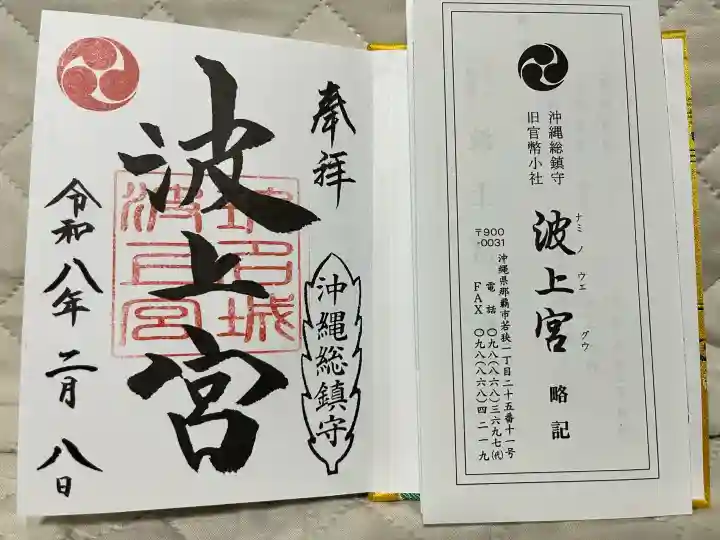 奉拝
沖縄総鎮守
波上宮
令和八年二月八日
沖縄総鎮守
旧官幣小社
波上宮 略記
ナミ ノ ウエ グウ
〒900
-0031
沖縄県那覇市若狭一丁目二十五番十一号
電話 〇九八(八六八)三六九七(代)
FAX 〇九八(八六八)四二一九